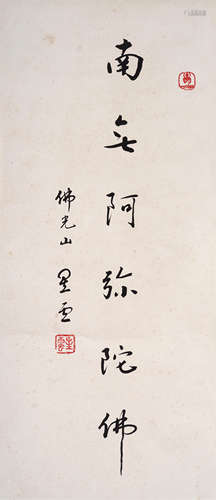 南无阿弥陀佛
佛光山 星雲